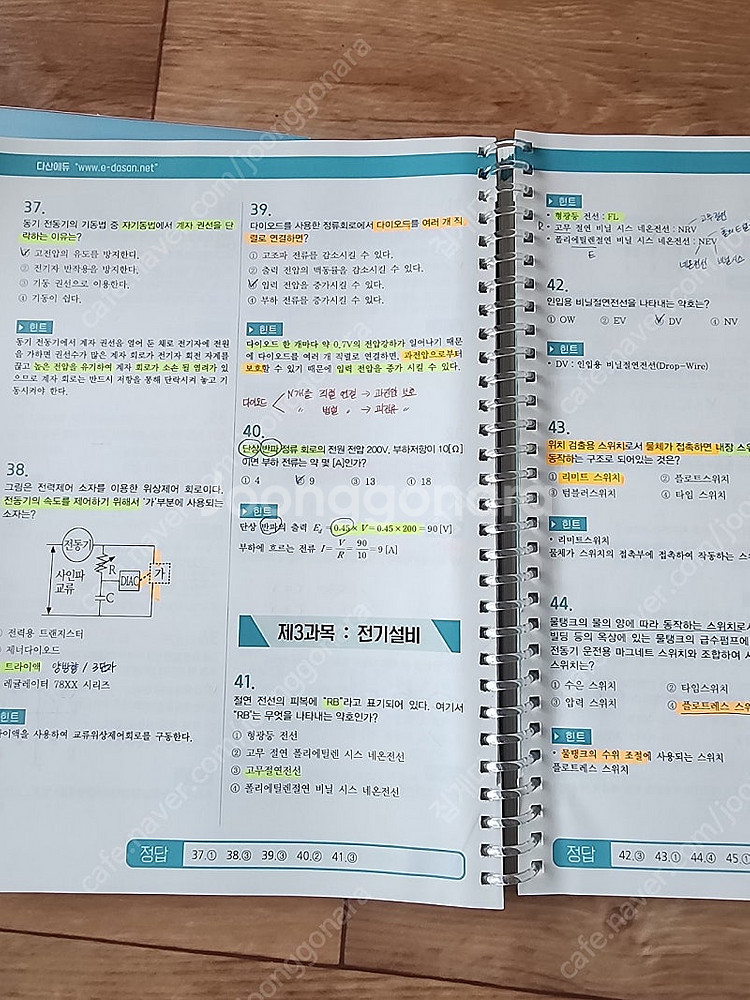 다산에듀 "www.e-dasan.net"
37.
동기 전동기의 기동법 중 자기동법에서 계자 권선을 단
락하는 이유는?
① 고전압의 유도를 방지한다.
② 전기자 반작용을 방지한다.
③ 기동 권선으로 이용한다.
④ 기동이 쉽다.
힌트
동기 전동기에서 계자 권선을 열어 둔 채로 전기자에 전원
을 가하면 권선수가 많은 계자 회로가 전기자 회전 자계를
끊고 높은 전압을 유기하여 계자 회로가 소손 될 염려가 있
으므로 계자 회로는 반드시 저항을 통해 단락시켜 놓고 기
동시켜야 한다.
38.
그림은 전력제어 소자를 이용한 위상제어 회로이다.
전동기의 속도를 제어하기 위해서 '가'부분에 사용되는
소자는?
전동기
사인파
교류
R
C
DIAC
가
전력용 트랜지스터
제너다이오드
트라이액 양방향 / 3단자
레귤레이터 78XX 시리즈
힌트
이액을 사용하여 교류위상제어회로를 구동한다.
39.
다이오드를 사용한 정류회로에서 다이오드를 여러 개 직
렬로 연결하면?
① 고조파 전류를 감소시킬 수 있다.
② 출력 전압의 맥동률을 감소시킬 수 있다.
③ 입력 전압을 증가시킬 수 있다.
④ 부하 전류를 증가시킬 수 있다.
힌트
다이오드 한 개마다 약 0.7V의 전압강하가 일어나기 때문
에 다이오드를 여러 개 직렬로 연결하면, 과전압으로부터
보호할 수 있기 때문에 입력 전압을 증가 시킬 수 있다.
다이오드 N개를 직렬 연결 → 과전압 보호
" 병렬 " → 과전류 "
40.
단상 반파 정류 회로의 전원 전압 200V, 부하저항이 10[Ω]
이면 부하 전류는 약 몇 [A]인가?
① 4 ② 9 ③ 13 ④ 18
힌트
단상 반파의 출력 E_d = 0.45 × V = 0.45 × 200 = 90 [V]
부하에 흐르는 전류 I = V/R = 90/10 = 9 [A]
제3과목 : 전기설비
41.
절연 전선의 피복에 "RB"라고 표기되어 있다. 여기서
"RB"는 무엇을 나타내는 약호인가?
① 형광등 전선
② 고무 절연 폴리에틸렌 시스 네온전선
③ 고무절연전선
④ 폴리에틸렌절연 비닐 시스 네온전선
정답 37.① 38.③ 39.③ 40.② 41.③
힌트
• 형광등 전선 : FL
• 고무 절연 비닐 시스 네온전선 : NRV
• 폴리에틸렌절연 비닐 시스 네온전선 : NEV
E
고무절연
네온전선 비닐시스
42.
인입용 비닐절연전선을 나타내는 약호는?
① OW ② EV ③ DV ④ NV
힌트
• DV : 인입용 비닐절연전선(Drop-Wire)
43.
위치 검출용 스위치로서 물체가 접촉하면 내장 스
동작하는 구조로 되어있는 것은?
① 리미트 스위치 ② 플로트스위치
③ 텀블러스위치 ④ 타임 스위치
힌트
• 리미트스위치
물체가 스위치의 접촉부에 접촉하여 작동하는 스
44.
물탱크의 물의 양에 따라 동작하는 스위치로서
빌딩 등의 옥상에 있는 물탱크의 급수펌프에
전동기 운전용 마그네트 스위치와 조합하여 사
스위치는?
① 수은 스위치 ② 타임스위치
③ 압력 스위치 ④ 플로트레스 스위
힌트
• 물탱크의 수위 조절에 사용되는 스위치
플로트레스 스위치
정답 42.③ 43.① 44.④ 45.①